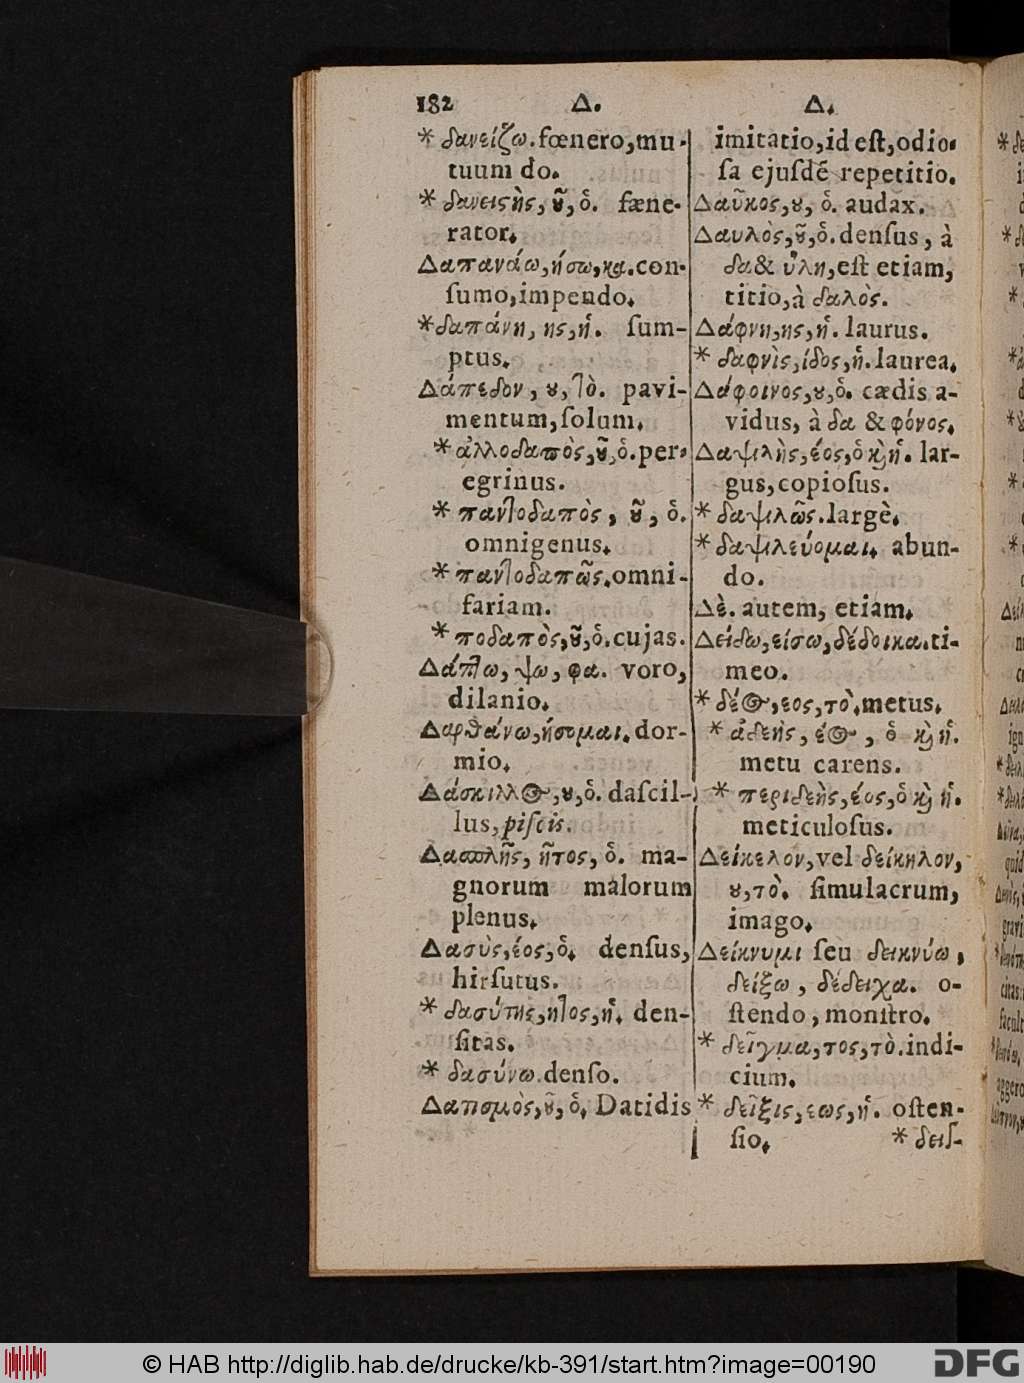 182 Δ.
* δανείζω. fœnero, mu-
tuum do.
* δανειϛὴς, ȣ̃, ὁ. fæne-
rator.
Δαπανάω, ήσω, κα. con-
ſumo, impendo.
* δαπάνη, ης, ἡ. ſum-
ptus.
Δάπεδον, ȣ, τὸ. pavi-
mentum, ſolum.
* ἀλλοδαπὸς, ȣ̃, ὁ. per-
egrinus.
* παντοδαπὸς, ȣ̃, ὁ.
omnigenus.
* παντοδαπῶς. omni-
fariam.
* ποδαπὸς, ȣ̃, ὁ. cujas.
Δάπτω, ψω, φα. voro,
dilanio.
Δαρθάνω, ήσομαι. dor-
mio.
Δάσκιλλος, ȣ, ὁ. daſcil-
lus, piſcis.
Δασπλῆς, ῆτος, ὁ. ma-
gnorum malorum
plenus.
Δασὺς, έος, ὁ. denſus,
hirſutus.
* δασύτης, ητος, ἡ. den-
ſitas.
* δασύνω. denſo.
Δατισμὸς, ȣ̃, ὁ. Datidis
Δ.
imitatio, id eſt, odio-
ſa ejuſdẽ repetitio.
Δαῦκος, ȣ, ὁ. audax.
Δαυλὸς, ȣ̃, ὁ. denſus, à
δα & ὕλη, eſt etiam,
titio, à δαλὸς.
Δάφνη, ης, ἡ. laurus.
* δαφνὶς, ίδος, ἡ. laurea.
Δάφοινος, ȣ, ὁ. cædis a-
vidus, à δα & φόνος.
Δαψιλὴς, έος, ὁ ϗ ἡ. lar-
gus, copioſus.
* δαψιλῶς. largè.
* δαψιλεύομαι. abun-
do.
Δὲ. autem, etiam.
Δείδω, είσω, δέδοικα. ti-
meo.
* δέος, εος, τὸ. metus.
* ἀδεὴς, έος, ὁ ϗ ἡ.
metu carens.
* περιδεὴς, έος, ὁ ϗ ἡ.
meticuloſus.
Δείκελον, vel δείκηλον,
ȣ, τὸ. ſimulacrum,
imago.
Δείκνυμι ſeu δεικνύω,
δείξω, δέδειχα. o-
ſtendo, monſtro.
* δεῖγμα, τος, τὸ. indi-
cium.
* δεῖξις, εως, ἡ. oſten-
ſio. * δεισ-
© HAB http://diglib.hab.de/drucke/kb-391/start.htm?image=00190
DFG